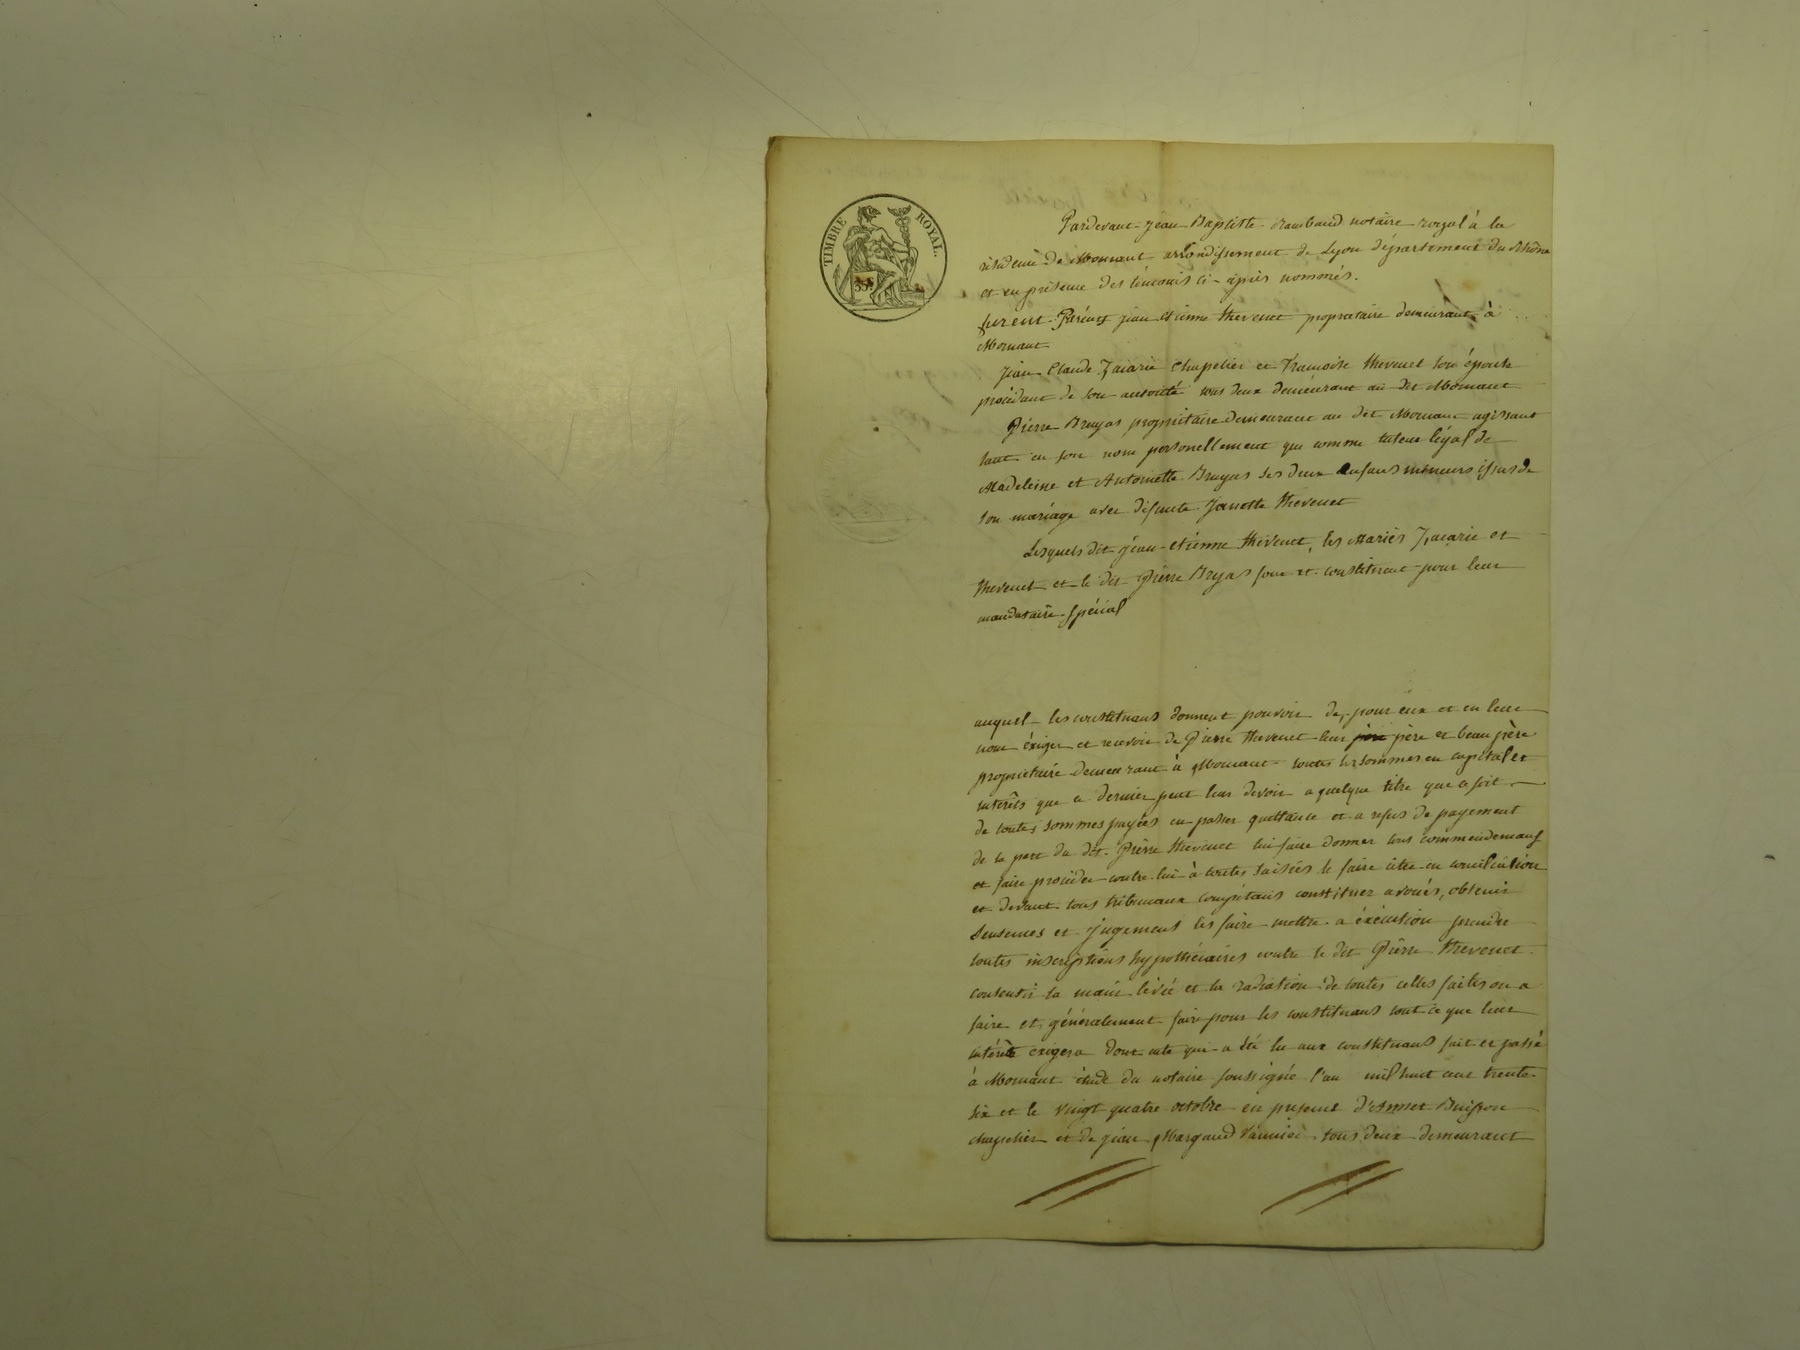 TIMBRE ROYAL.
35c
Pardevant jean Baptiste Rambaud notaire royal à la
résidence de Mornant arrondissement de Lyon département du Rhône
et en présence des témoins ci-après nommés.
furent Présens jean etienne thevenet propriétaire demeurant à
Mornant
jean Claude Zacarie chapelier et Françoise thevenet son épouse
procédant de son autorité tous deux demeurant au dit Mornant
Pierre Bruyas propriétaire demeurant au dit Mornant agissant
tant en son nom personellement que comme tuteur légal de
Madeleine et Antoinette Bruyas ses deux enfans mineurs issus de
son mariage avec défunte Janette thevenet
Lesquels dit jean etienne thevenet, les mariés Zacarie et
thevenet et le dit Pierre Bryas font et constituent pour leur
mandataire spécial
auquel les constituans donnent pouvoir de, pour eux et en leur
nom éxiger et recevoir de Pierre thevenet leur père et beau père
propriétaire demeurant à Mornant toutes les sommes en capital et
intérêts que ce dernier peut leur devoir a quelque titre que ce soit
de toutes sommes payées en passer quittance et a refus de payement
de la part du dit Pierre thevenet lui faire donner tous commendemens
et faire procéder contre lui à toutes saisies le faire citer en conciliation
et devant tous tribunaux compétans constituer avoués, obtenir
sentences et jugemens les faire mettre a éxécution prendre
toutes inscriptions hypothécaires contre le dit Pierre thevenet
consentir la main levée et la radiation de toutes celles faites ou a
faire et généralement faire pour les constituans tout ce que leur
intérêt exigera dont acte qui a été lu aux constituans fait et passé
à Mornant étude du notaire soussigné l'an mil huit cent trente
six et le vingt quatre octobre en présence d'Annet Buisson
chapelier et de jean Margand tous deux demeurant